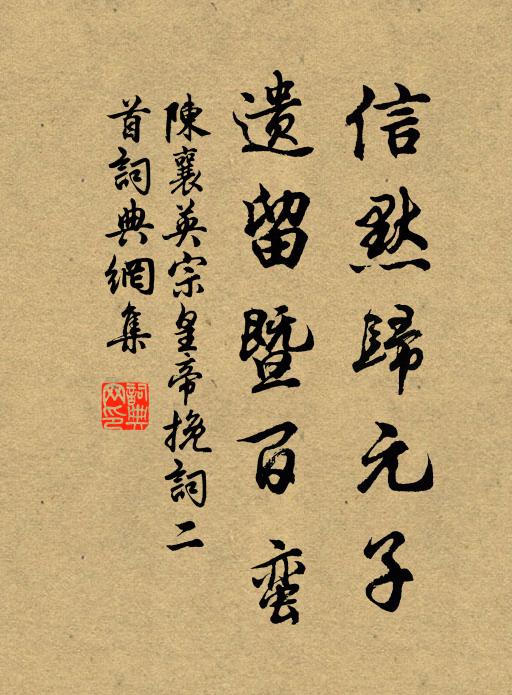 信默歸元子
遺留暨百蛮
陳襄英宗皇帝挽詞二
首詞典網集
詞典
网印